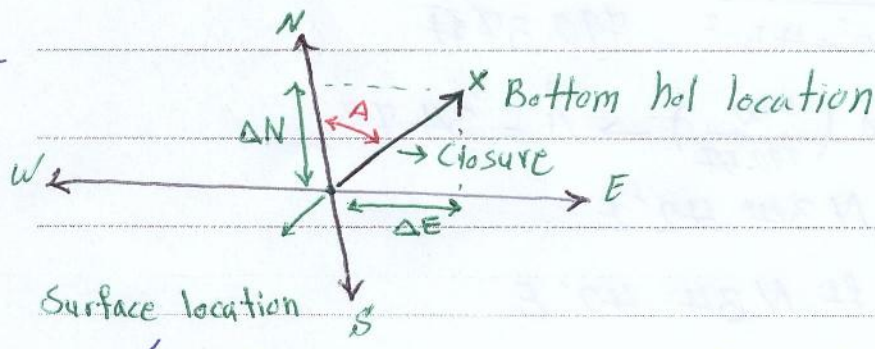 N
X Bottom hol location
A
ΔN
→ Closure
W
E
ΔE
Surface location
S